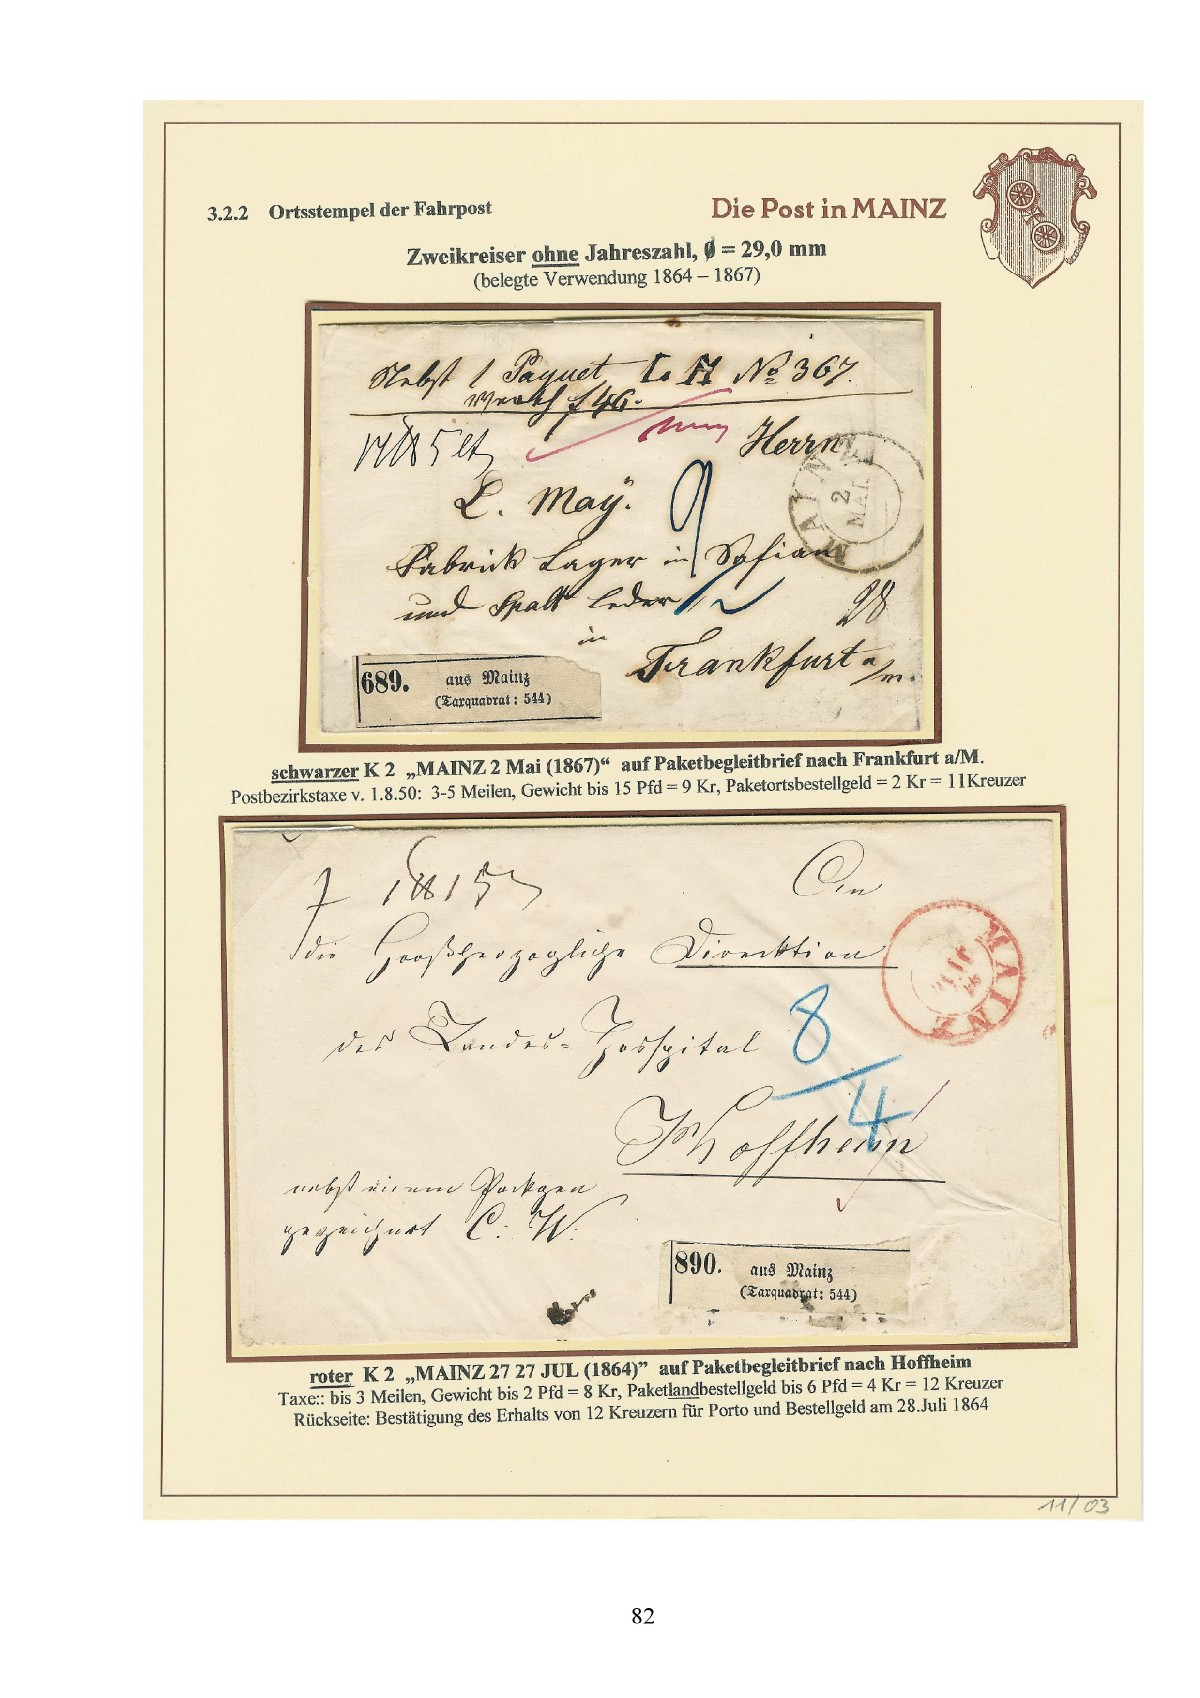 3.2.2 Ortsstempel der Fahrpost
Die Post in MAINZ
Zweikreiser ohne Jahreszahl, Ø = 29,0 mm
(belegte Verwendung 1864 – 1867)
Nebst 1 Paquet L. M No 367.
Werth f 46.
Herrn
MAINZ
2
MAI.
L. May.
9
Fabrick Lager in Safian
und Spalt leder
2
28
in
Frankfurt a/m.
689. aus Mainz
(Taxquadrat: 544)
schwarzer K 2 „MAINZ 2 Mai (1867)“ auf Paketbegleitbrief nach Frankfurt a/M.
Postbezirkstaxe v. 1.8.50: 3-5 Meilen, Gewicht bis 15 Pfd = 9 Kr, Paketortsbestellgeld = 2 Kr = 11Kreuzer
An
die Großherzogliche Direktion
MAINZ
des Landes-Hospital
8
4
Hoffheim
nebst einem Packgen
gezeichnet C. W.
890. aus Mainz
(Taxquadrat: 544)
roter K 2 „MAINZ 27 27 JUL (1864)” auf Paketbegleitbrief nach Hoffheim
Taxe:: bis 3 Meilen, Gewicht bis 2 Pfd = 8 Kr, Paketlandbestellgeld bis 6 Pfd = 4 Kr = 12 Kreuzer
Rückseite: Bestätigung des Erhalts von 12 Kreuzern für Porto und Bestellgeld am 28.Juli 1864
11/03
82